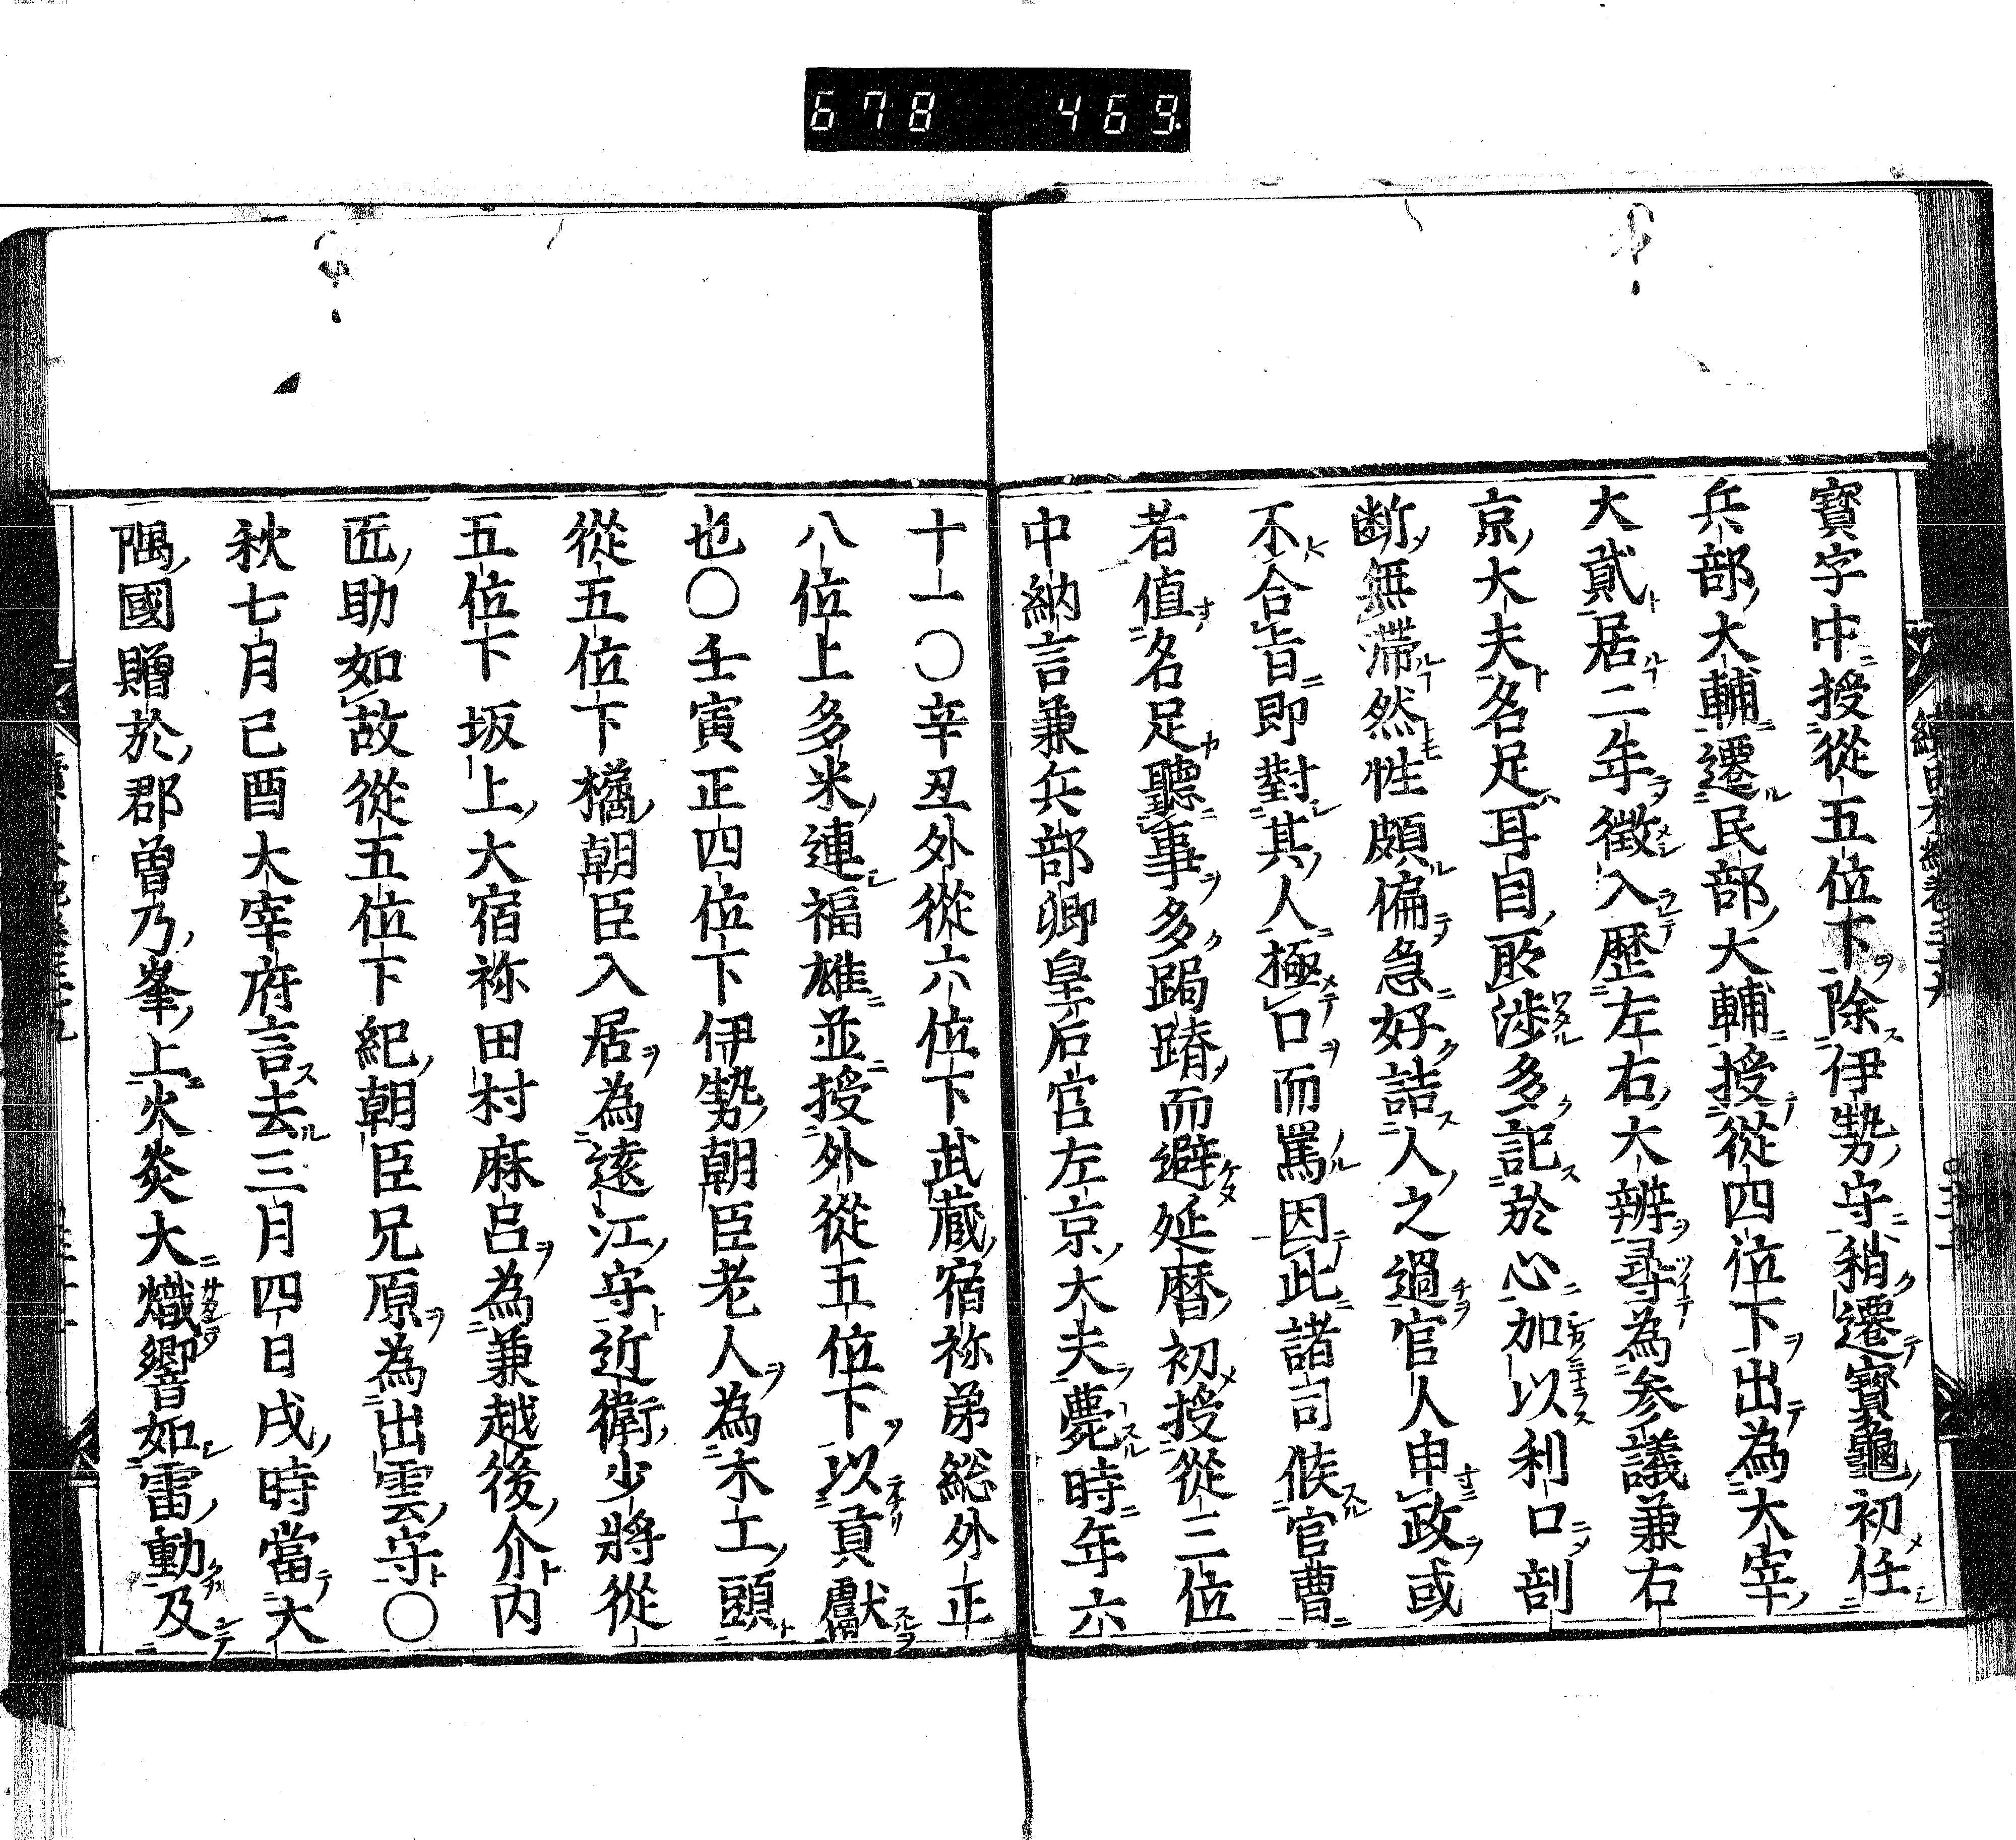 678 469.
寶字中授從五位下除伊勢守稍遷寶龜初任
兵部大輔遷民部大輔授從四位下出為大宰
大貳居二年徵入歷左右大辨尋為参議兼右
京大夫名足耳目所涉多記於心加以利口剖
断無滯然性頗偏急好詰人之過官人申政或
不合旨即對其人極口而罵因此諸司候官曹
者值名足聽事多跼蹐而避延曆初授從三位
中納言兼兵部卿皇后宮左京大夫薨時年六
十一〇辛丑外從六位下武蔵宿祢弟総外正
八位上多米連福雄並授外從五位下以貢獻
也〇壬寅正四位下伊勢朝臣老人為木工頭
從五位下橘朝臣入居為遠江守近衛少將從
五位下坂上大宿祢田村麻呂為兼越後介內
匠助如故從五位下紀朝臣兄原為出雲守〇
秋七月己酉大宰府言去三月四日戌時當大
隅國贈於郡曾乃峯上火炎大熾響如雷動及